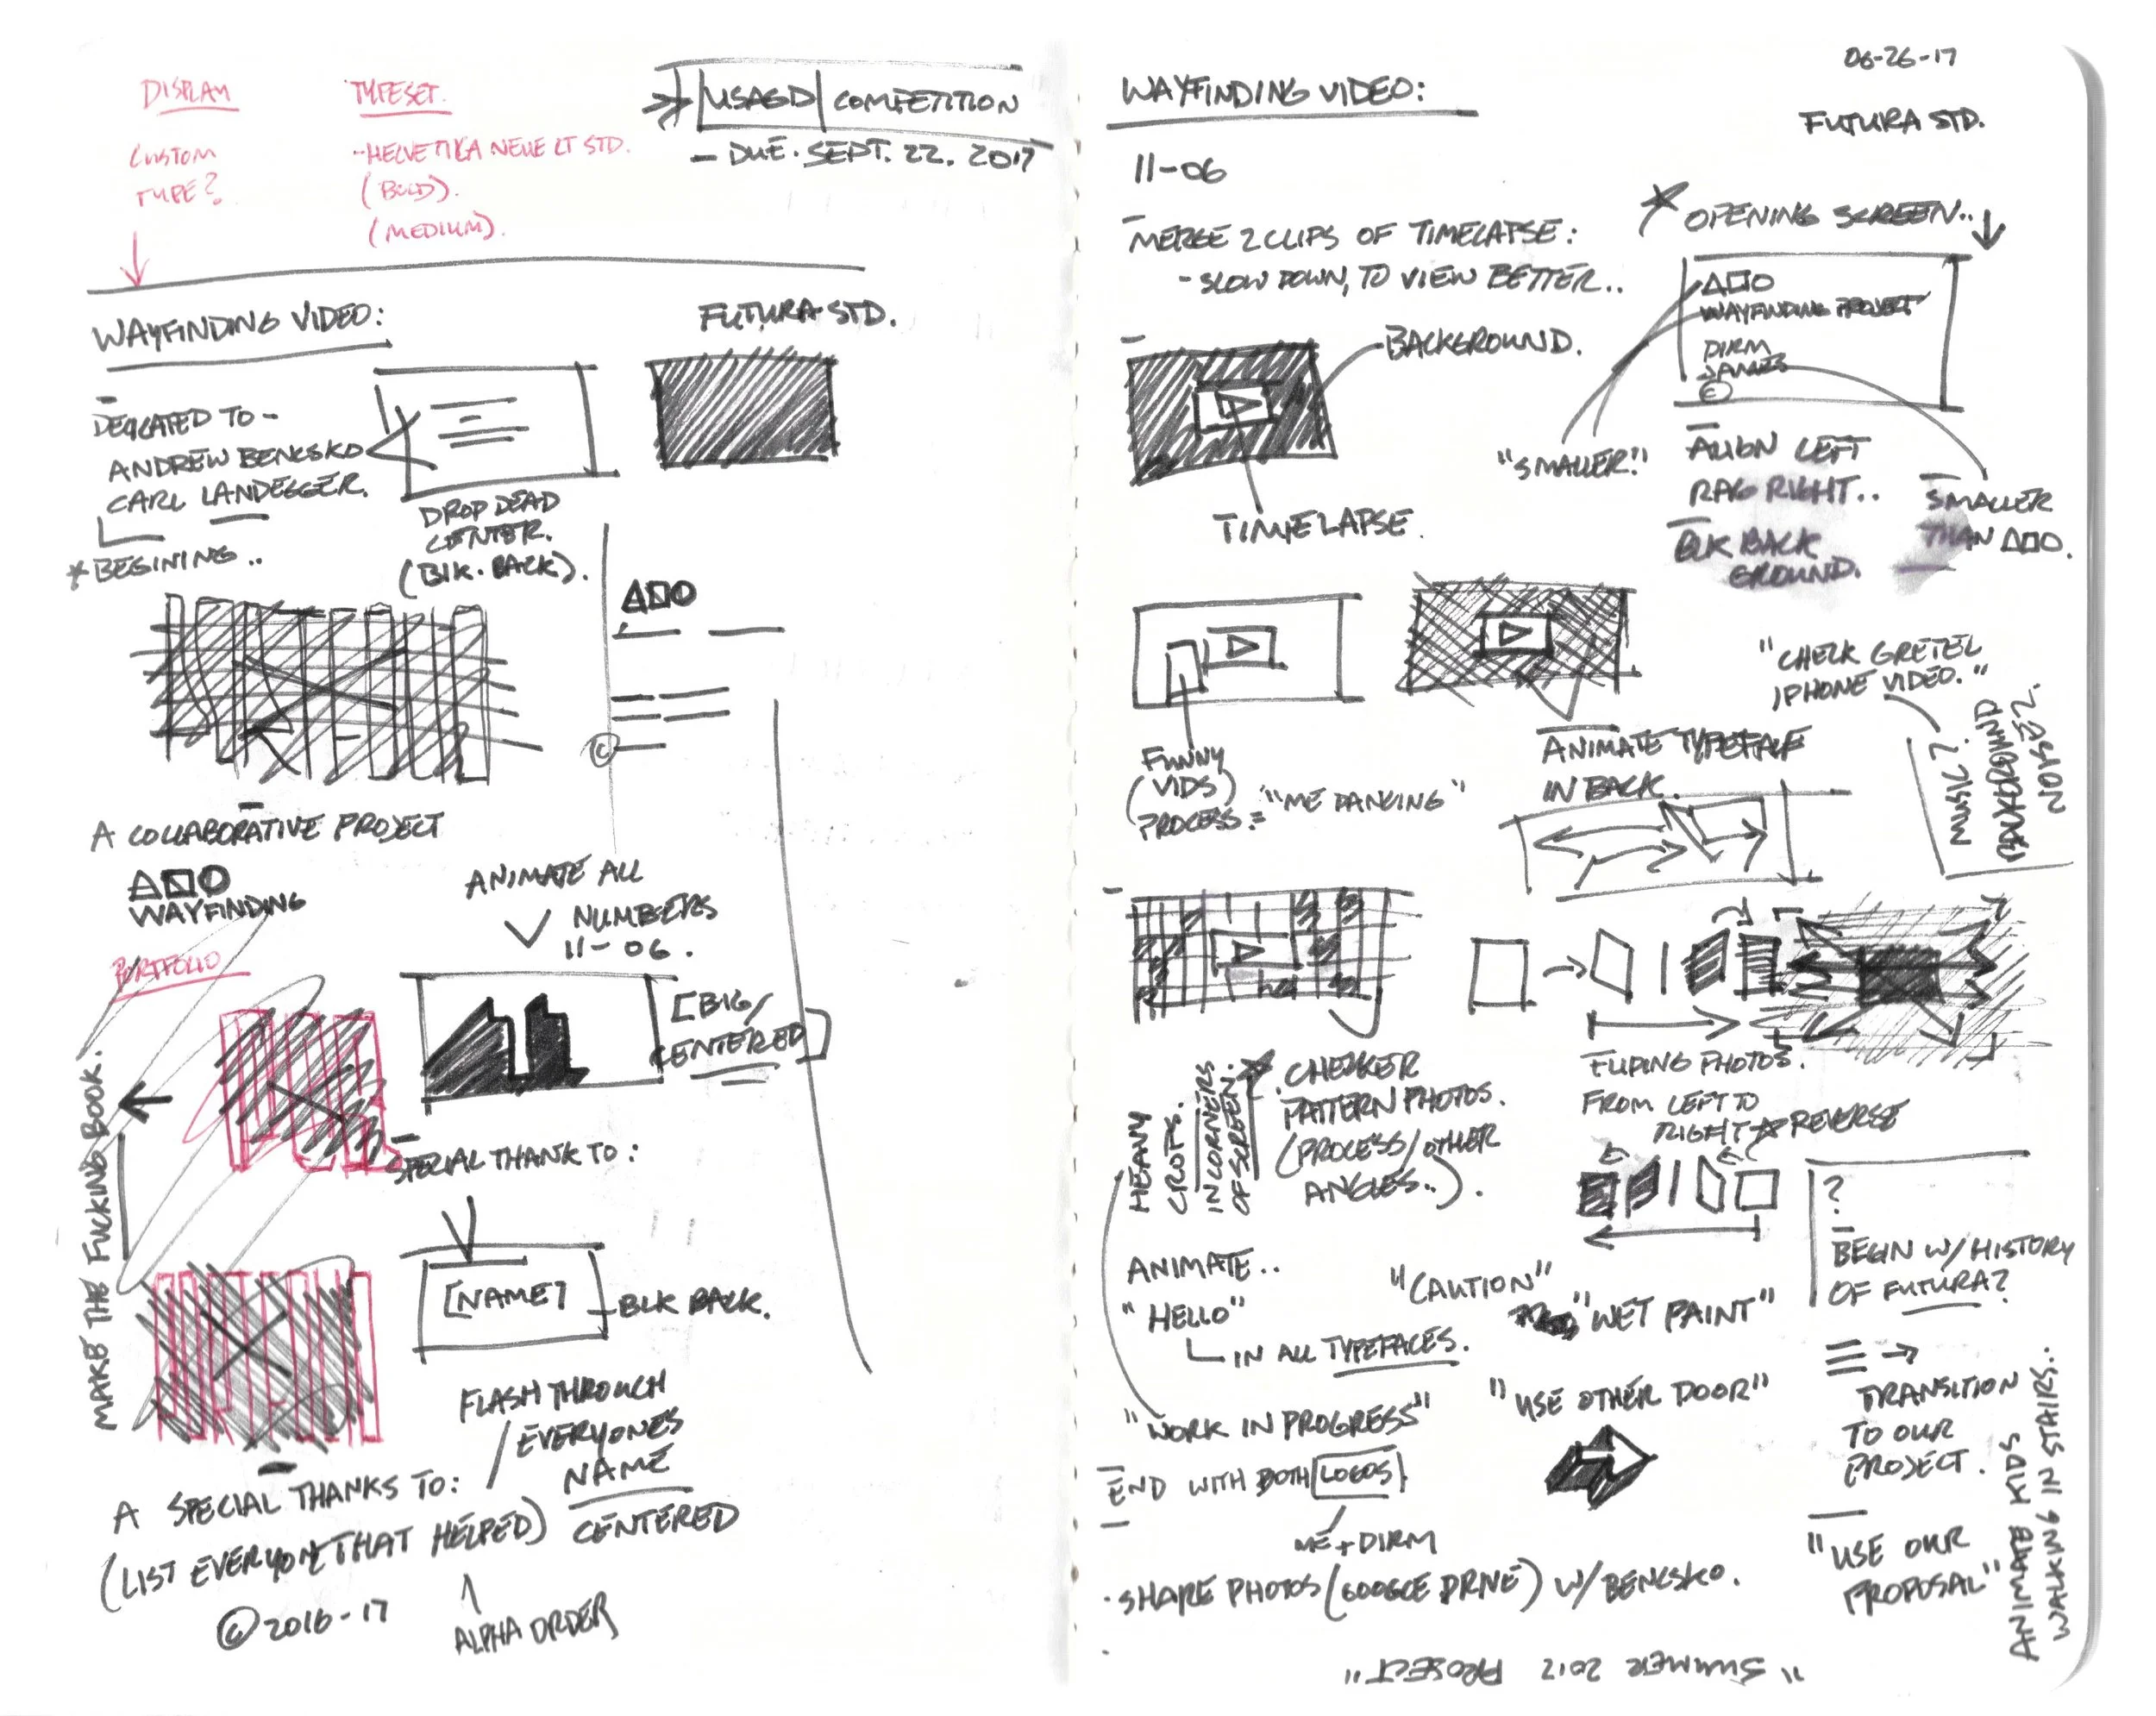 DISPLAY
CUSTOM
TYPE?
TYPESET.
-HELVETIKA NEUE LT STD.
(BOLD).
(MEDIUM).
USAGD COMPETITION
- DUE. SEPT. 22. 2017
WAYFINDING VIDEO:
FUTURA STD.
DEDICATED TO -
ANDREW BENCSKO
CARL LANDEGGER.
*BEGINING..
DROP DEAD
CENTER.
(BLK. BACK).
△□○
©
A COLLABORATIVE PROJECT
△□○
WAYFINDING
ANIMATE ALL
NUMBERS
11-06.
PORTFOLIO
[BIG/
CENTERED]
MAKE THE FUCKING BOOK.
SPECIAL THANK TO:
[NAME]
BLK BACK.
FLASH THROUGH
/EVERYONES
NAME
CENTERED
A SPECIAL THANKS TO:
(LIST EVERYONE THAT HELPED)
© 2016-17
ALPHA ORDER
06-26-17
WAYFINDING VIDEO:
FUTURA STD.
11-06
- MERGE 2 CLIPS OF TIMELAPSE:
- SLOW DOWN, TO VIEW BETTER..
* OPENING SCREEN..
△□○
WAYFINDING PROJECT
DIRM
JAMES
©
BACKGROUND.
TIMELAPSE.
"SMALLER!"
- ALIGN LEFT
RAG RIGHT..
- BLK BACK
GROUND.
- SMALLER
THAN △□○.
FUNNY
(VIDS)
PROCESS = "ME DANCING"
ANIMATE TYPEFACE
IN BACK.
"CHECK GRETEL
IPHONE VIDEO."
MUSIC?
BACKGROUND
NOISE?
HEAVY
CROPS.
IN CORNERS
OF SCREEN.
* CHECKER
PATTERN PHOTOS.
(PROCESS/OTHER
ANGLES..).
FLIPING PHOTOS.
FROM LEFT TO
RIGHT * REVERSE
ANIMATE..
"HELLO"
IN ALL TYPEFACES.
"CAUTION"
"WET PAINT"
?
- BEGIN W/ HISTORY
OF FUTURA?
TRANSITION
TO OUR
PROJECT.
"WORK IN PROGRESS"
"USE OTHER DOOR"
- END WITH BOTH LOGOS
ME + DIRM
· SHARE PHOTOS (GOOGLE DRIVE) W/ BENCSKO.
"USE OUR
PROPOSAL"
ANIMATE KIDS
WALKING IN STAIRS..
"SUMMER 2017 PROJECT"